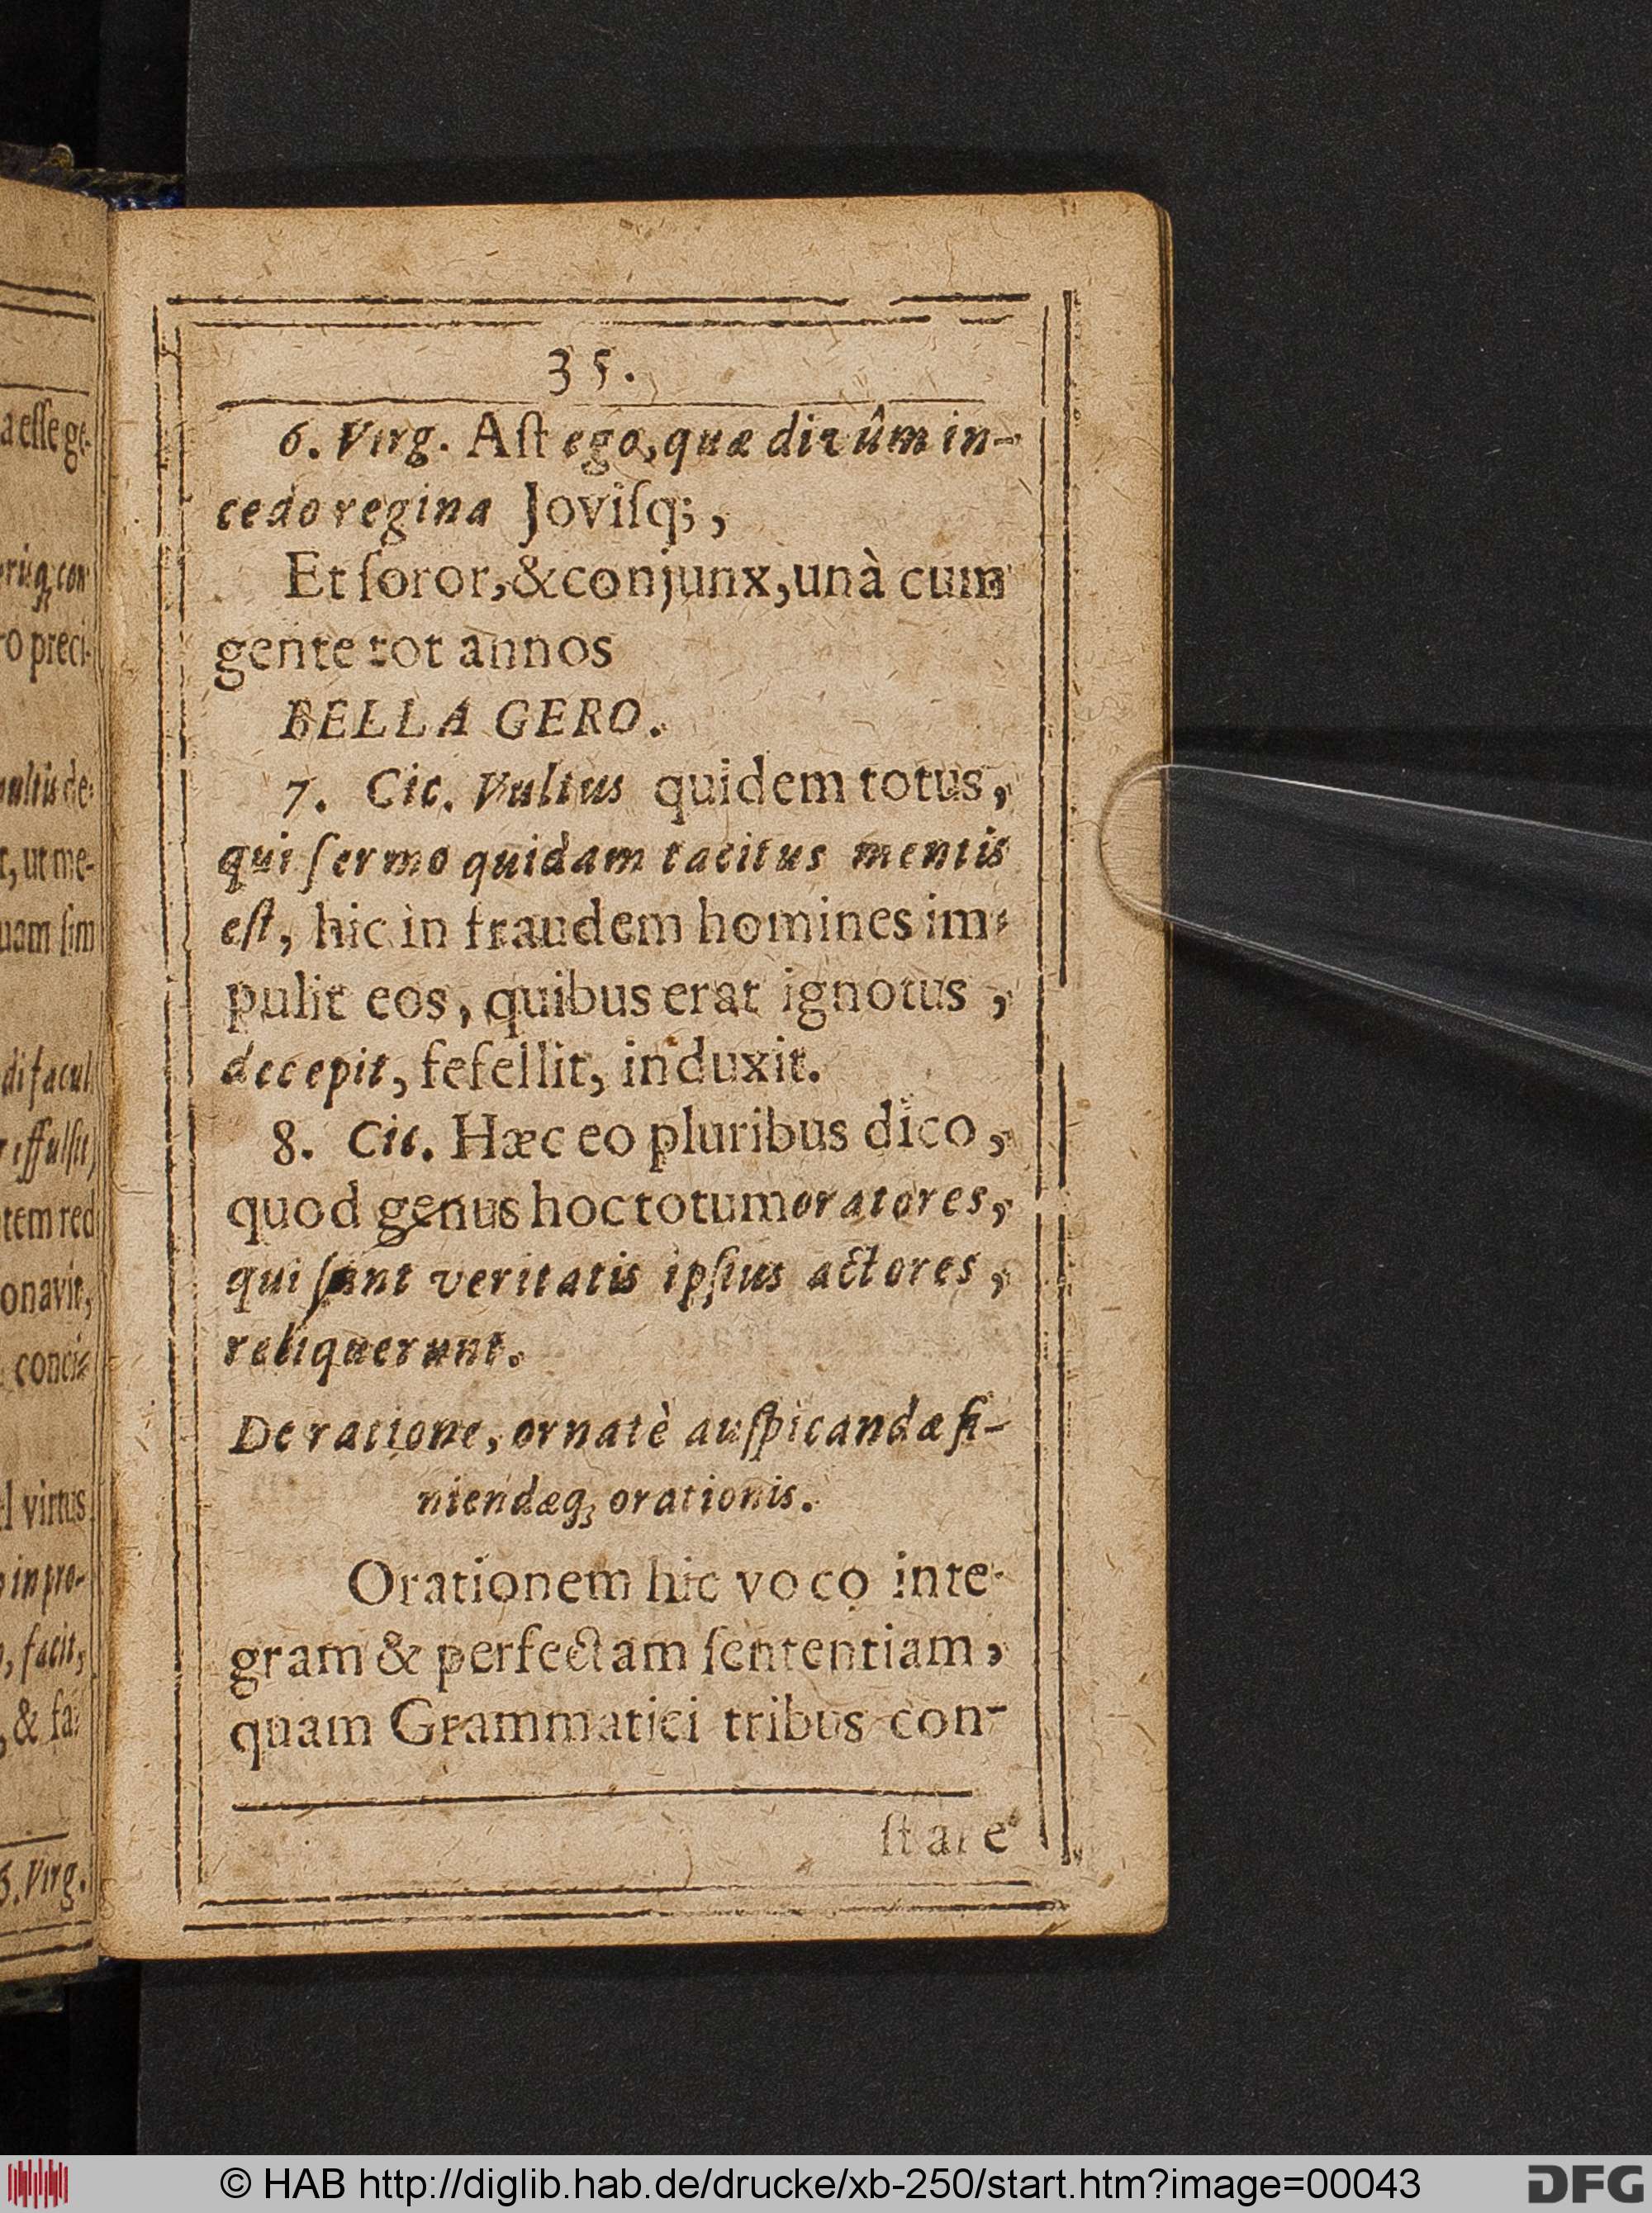 a esse ge-
riq; con
ro preci-
multis de-
t, ut me-
uam sim
di facul
effulsit)
tem red
onavit,
conci-
el virtus
in pro-
, facit,
, & fa-
6. Virg.
35.
6. Virg. Aſt ego, quæ divûm in-
cedo regina Joviſq;,
Et ſoror, & conjunx, unà cum
gente tot annos
BELLA GERO.
7. Cic. Vultus quidem totus,
qui ſermo quidam tacitus mentis
eſt, hic in fraudem homines im-
pulit eos, quibus erat ignotus,
decepit, fefellit, induxit.
8. Cic. Hæc eo pluribus dico,
quod genus hoc totum oratores,
qui ſunt veritatis ipſius actores,
reliquerunt.
De ratione, ornatè auſpicandæ fi-
niendæq; orationis.
Orationem hic voco inte-
gram & perfectam ſententiam,
quam Grammatici tribus con-
ſtare
© HAB http://diglib.hab.de/drucke/xb-250/start.htm?image=00043
DFG